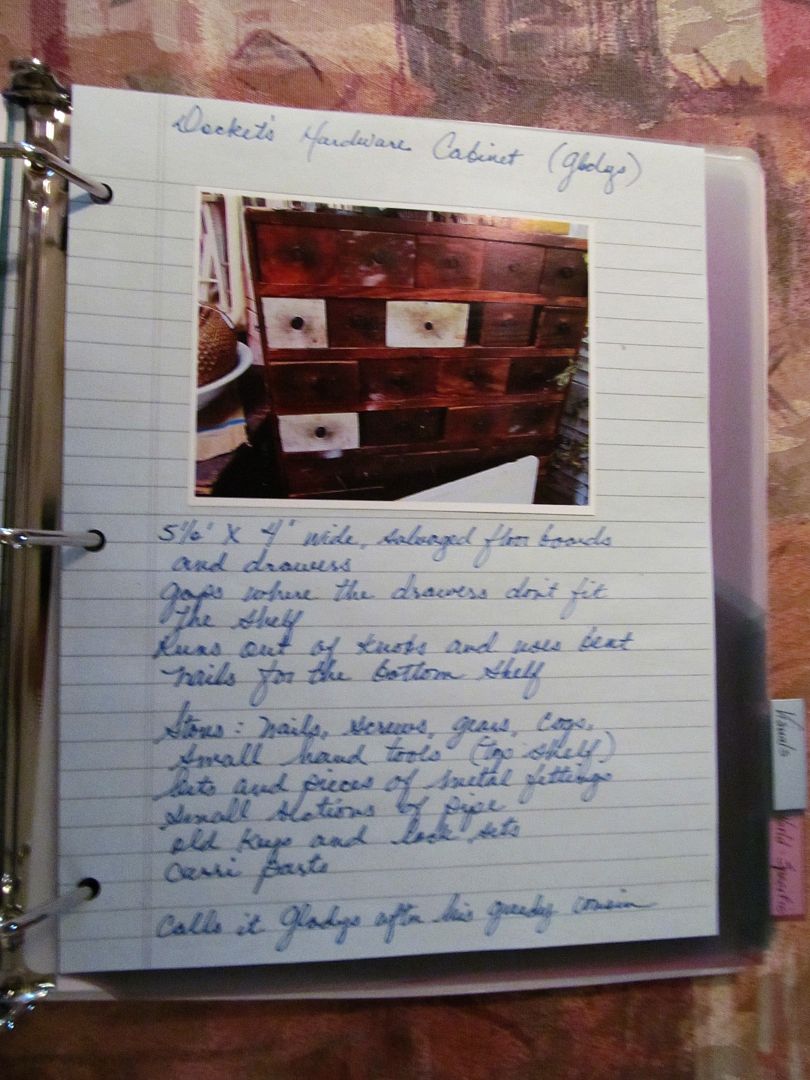 Docket's Hardware Cabinet (Gladys)
X 4' wide, salvaged floor boards
and drawers
gaps where the drawers don't fit
the shelf
Runs out of knobs and uses bent
nails for the bottom shelf
Stores: nails, screws, gears, cogs,
small hand tools (top shelf)
bits and pieces of metal fittings
small of pipe
old keys and lock sets
parts
Calls it Gladys after his greedy cousin
Visuals